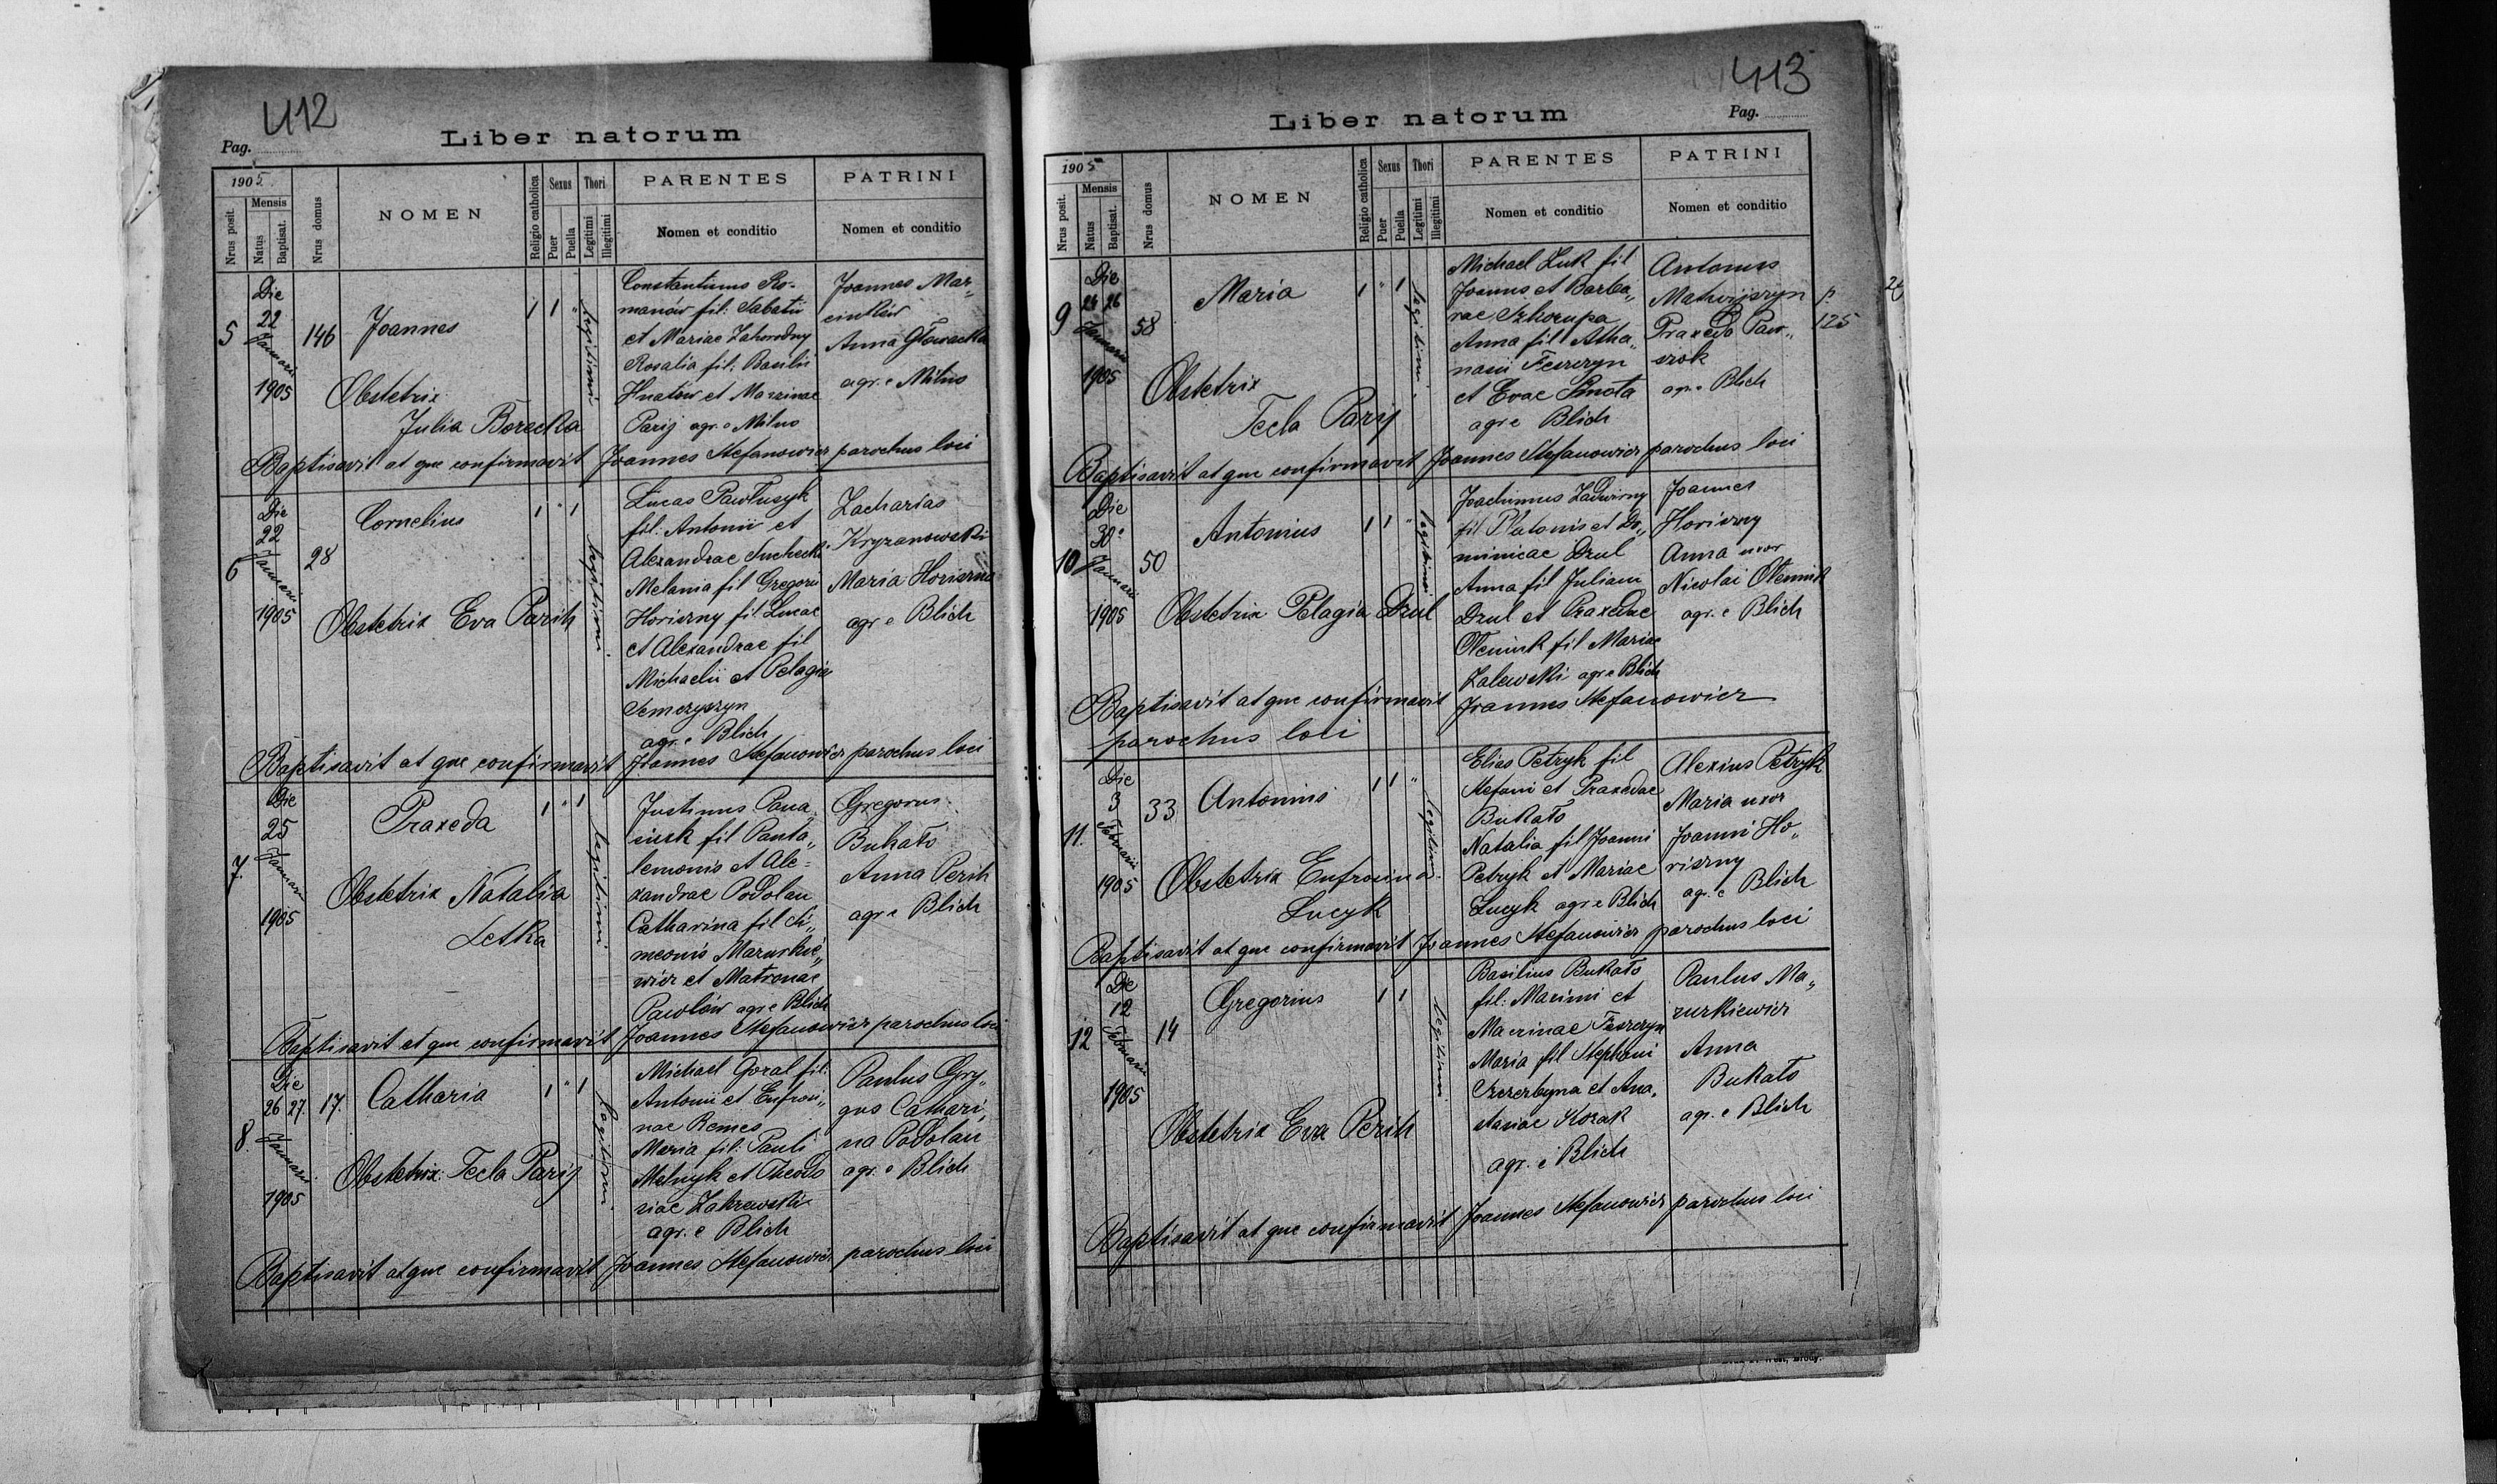 412
Pag.
Liber natorum
1905
Nrus posit.
Mensis
Natus
Baptisat.
Nrus domus
NOMEN
Religio catholica
Sexus
Puer
Puella
Thori
Legitimi
Illegitimi
PARENTES
Nomen et conditio
PATRINI
Nomen et conditio
5
Die
22
Januarii
1905
146
Joannes
Obstetrix
Julia Borecka
1 1 "
legitimi
Constantinus Ro-
manów fil: Sabatii
et Mariae Zahorodny
Rosalia fil: Basilii
Hnatow et Marinae
Parij agr. e Milno
Joannes Mar„
cinków
Anna Głowacka
agr. e Milno
Baptisavit at que confirmavit Joannes Stefanowicz parochus loci
6
Die
22
Januarii
1905
28
Cornelius
Obstetrix Eva Parih
1 " 1
legitimi
Lucas Pawłusyk
fil. Antonii et
Alexandrae Suchecki
Melania fil Gregorii
Horiszny fil Lucae
et Alexandrae fil
Michaelii et Pelagia
Semczyszyn
agr. e Blich
Zacharias
Kryzanowski
Maria Horiszna
agr e Blich
Baptisavit at que confirmavit Joannes Stefanowicz parochus loci
7.
Die
25
Januarii
1905
Praxeda
Obstetrix Natalia
Letka
1 " 1
legitimi
Justinus Pana
siuk fil Panta„
lemonis et Ale=
xandrae Podolan
Catharina fil Si„
meonis Mazurkie„
wicz et Matronae
Pawlów agr e Blich
Gregorus
Bukato
Anna Perih
agr e Blich
Baptisavit et que confirmavit Joannes Stefanowicz parochus loci
8.
Die
26 27.
Januarii
1905
17.
Catharia
Obstetrix: Tecla Parij
1 " 1
legitimi
Michael Goral fil:
Antonii et Eufrosi„
nae Remes
Maria fil: Pauli
Melnyk et Theodo
siae Zakrewski
agr. e Blich
Paulus Gry„
gus Cathari„
na Podolan
agr. e Blich
Baptisavit at que confirmavit Joannes Stefanowicz parochus loci
413
Liber natorum
Pag.
1905
Nrus posit.
Mensis
Natus
Baptisat.
Nrus domus
NOMEN
Religio catholica
Sexus
Puer
Puella
Thori
Legitimi
Illegitimi
PARENTES
Nomen et conditio
PATRINI
Nomen et conditio
9
Die
24 26
Januarii
1905
58
Maria
Obstetrix
Tecla Parij
1 " 1
legitimi
Michael Luk fil
Joannis et Barba„
rae Szkorupa
Anna fil Atha„
nasii Feszczyn
et Evae Smota
agr e Blich
Antonius
Matwijszyn
Praxeda Paw„
szok
agr. e Blich
p.
125
Baptisavit at que confirmavit Joannes Stefanowicz parochus loci
10
Die
30
Januarii
1905
50
Antonius
Obstetrix Pelagia Dzul
1 1 "
legitimi
Joachimus Zadwirny
fil Platonis et Do„
minicae Dzul
Anna fil Juliani
Dzul et Praxedae
Oleniuk fil Mariae
Zalewski agr e Blich
Joannes
Horiszny
Anna uxor
Nicolai Oleniuk
agr. e Blich
Baptisavit at que confirmavit Joannes Stefanowicz
parochus loci
11.
Die
3
Februarii
1905
33
Antonius
Obstetrix Eufrosina
Lucyk
1 1 "
legitimi
Elias Petryk fil
Stefani et Praxedae
Bukato
Natalia fil Joanni
Petryk et Mariae
Lucyk agr e Blich
Alexius Petryk
Maria uxor
Joanni Ho„
riszny
agr. e Blich
Baptisavit at que confirmavit Joannes Stefanowicz parochus loci
12
Die
12
Februarii
1905
14
Gregorius
Obstetrix Eva Perih
1 1
legitimi
Basilius Bukato
fil: Maximi et
Macrinae Feszczyn
Maria fil Stephani
Szczerbyna et Ana„
stasiae Kozak
agr. e Blich
Paulus Ma„
zurkiewicz
Anna
Bukato
agr. e Blich
Baptisavit at que confirmavit Joannes Stefanowicz parochus loci